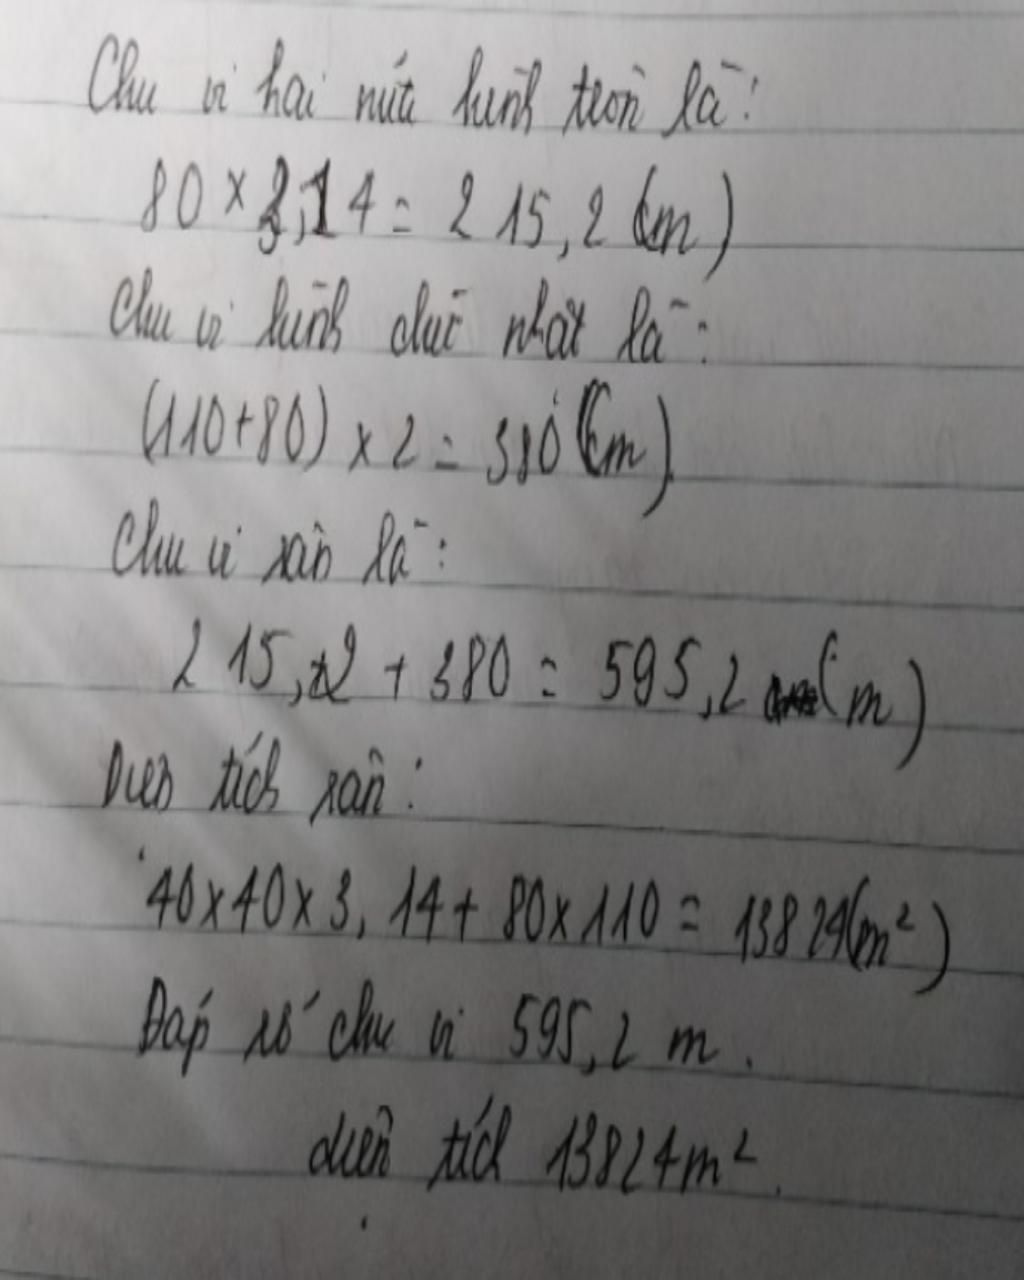 Chu vi hai nửa hình tròn là:
80 x 3,14 = 215,2 (m)
Chu vi hình chữ nhật là:
(110+80) x 2 = 380 (m)
Chu vi sân là:
215,2 + 380 = 595,2 (m)
Diện tích sân:
40x40x3,14+80x110 = 13824(m²)
Đáp số chu vi 595,2 m.
diện tích 13824m².